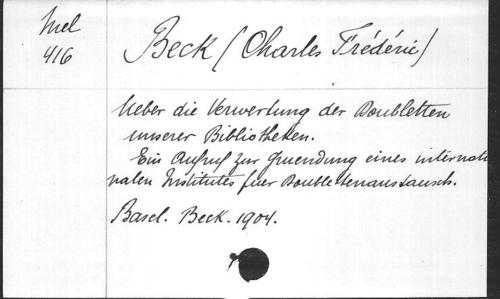 Mel
416
Beck (Charles Frédéric)
Ueber die Verwertung der Doubletten
unserer Bibliotheken.
Ein Aufruf zur Gruendung eines internatio
nalen Institutes fuer Doublettenaustausch.
Basel. Beck. 1904.